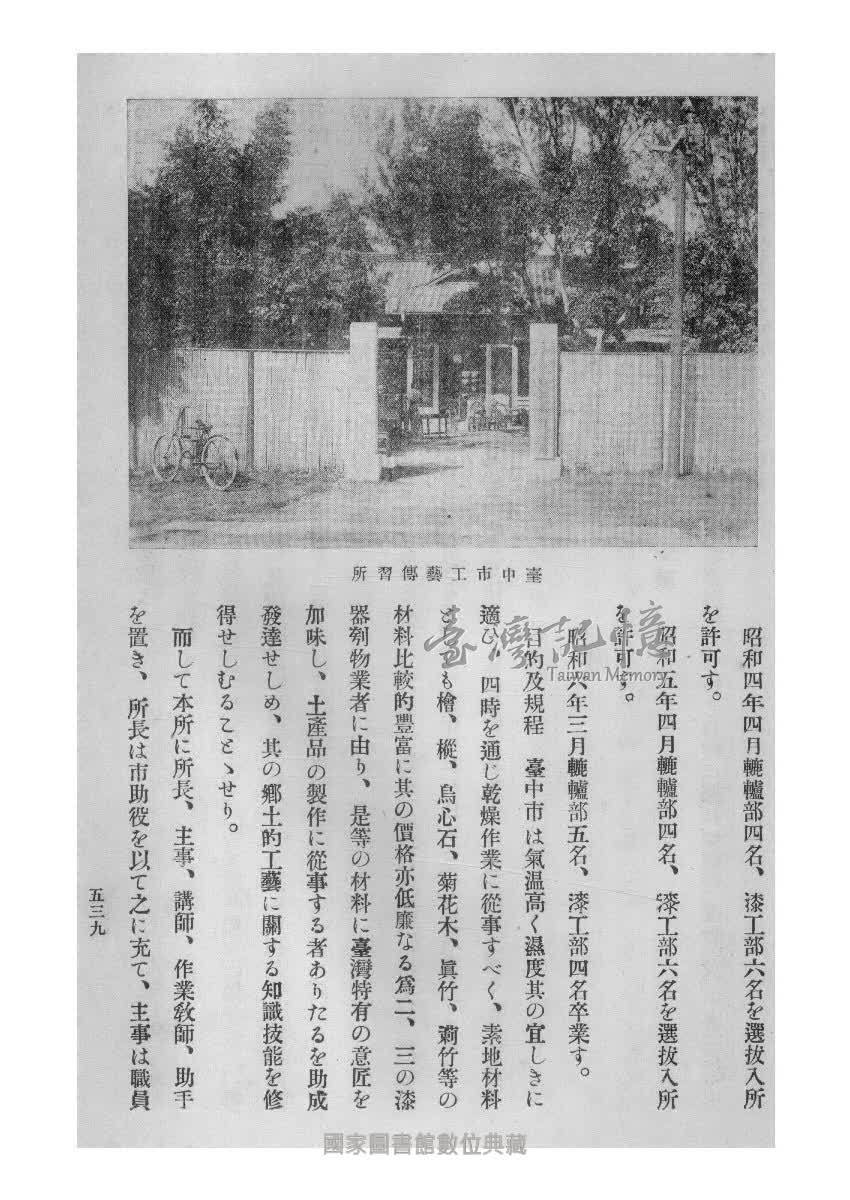 臺中市工藝傳習所
昭和四年四月轆轤部四名、漆工部六名を選拔入所
を許可す。
昭和五年四月轆轤部四名、漆工部六名を選拔入所
を許可す。
昭和六年三月轆轤部五名、漆工部四名卒業す。
目的及規程　臺中市は氣温高く濕度其の宜しきに
適ひ、四時を通じ乾燥作業に從事すべく、素地材料
としても檜、樅、烏心石、菊花木、眞竹、竹等の
材料比較的豐富に其の價格亦低廉なる爲二、三の漆
器刳物業者に由り、是等の材料に臺灣特有の意匠を
加味し、土產品の製作に從事する者ありたるを助成
發達せしめ、其の鄕土的工藝に關する知識技能を修
得せしむることゝせり。
而して本所に所長、主事、講師、作業敎師、助手
を置き、所長は市助役を以て之に充て、主事は職員
五三九
臺灣記憶
Taiwan Memory
國家圖書館數位典藏